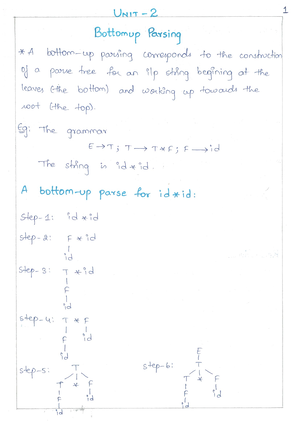 UNIT - 2
1
Bottomup Parsing
* A bottom-up parsing corresponds to the construction
of a parse tree for an i/p string begining at the
leaves (the bottom) and working up towards the
root (the top).
Eg: The grammar
E → T ; T → T * F ; F → id
The string is id * id.
A bottom-up parse for id * id:
Step-1: id * id
Step-2: F * id
id
Step-3: T * id
F
id
Step-4: T * F
F id
id
Step-5: T
T * F
F id
id
Step-6: E
T
T * F
F id
id